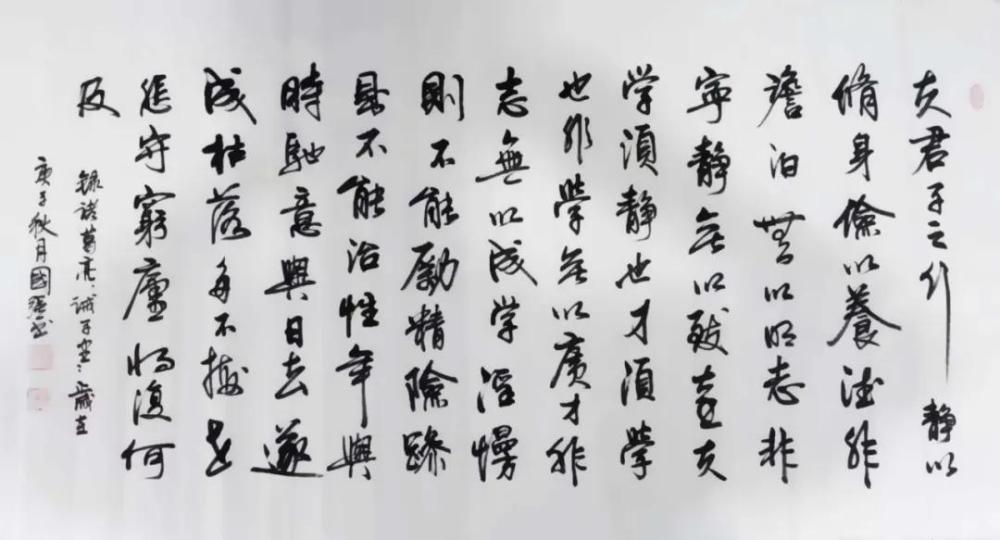 夫君子之行静以
脩身儉以養德非
澹泊無以明志非
寧静無以致遠夫
学須静也才須學
也非學無以廣才非
志無以成学滔慢
則不能勵精險躁
則不能治性年與
時馳意與日去遂
成枯落多不接世
悲守窮廬将復何
及
録諸葛亮誡子書歲在
庚子秋月國强书